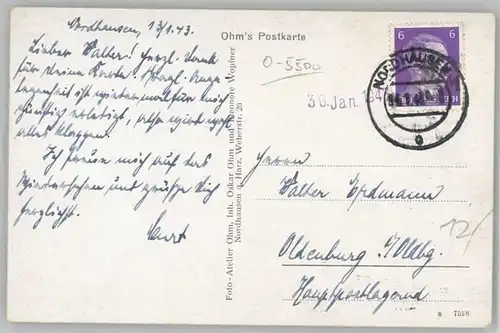 Nordhausen, 13/1.43.
Lieber Walter! Herzl. Dank
für Deine Karte. Angele-
genheit ist
günstig erledigt,
alles klappen.
Ich freue mich auf das
Wiedersehen und grüße Dich
herzlichst.
Curt
Ohm's Postkarte
0-5500
30. Jan. 194
NORDHAUSEN
6 6
Foto-Atelier Ohm, Inh. Oskar Ohm und Eleonore Wopfner
Nordhausen a. Harz, Weberstr. 20
Herrn
Walter Erdmann
Oldenburg i/Oldbg.
Hauptpostlagernd
12/
a 7548